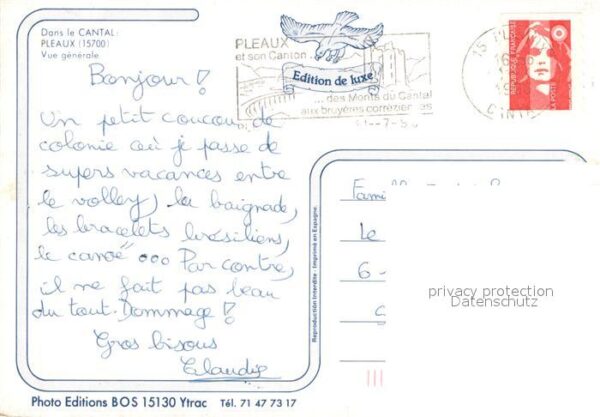 Dans le CANTAL
PLEAUX (15700)
Vue générale
PLEAUX
et son Canton
Edition de luxe
... des Monts du Cantal
aux bruyères corréziennes
15 PL
REPUBLIQUE FRANÇAISE
LA POSTE
Bonjour!
Un petit coucou de
colonie où je passe de
supers vacances entre
le volley, la baignade,
les bracelets brésiliens,
le canoë ... Par contre,
il ne fait pas beau
du tout. Dommage!
Gros bisous
Claudie
Reproduction Interdite - Imprimé en Espagne.
Le
6 -
privacy protection
Datenschutz
Photo Editions BOS 15130 Ytrac Tél. 71 47 73 17